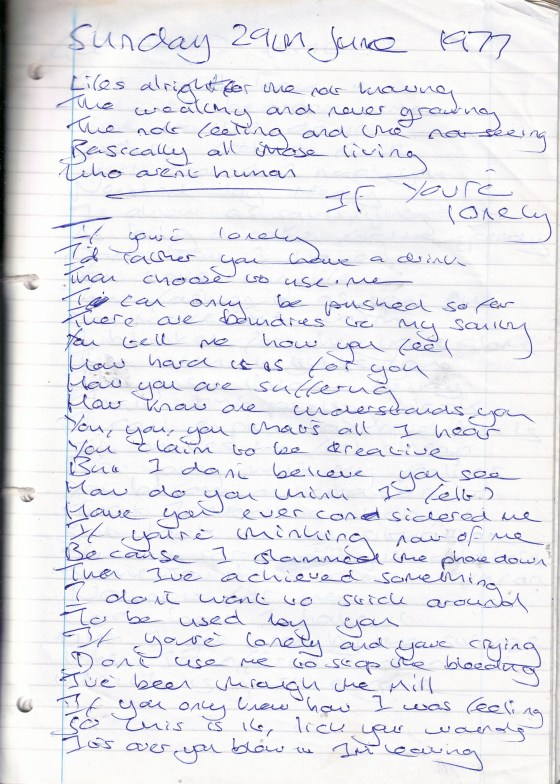 Sunday 29th June 1977
Lifes alright for the not knowing
The wealthy and never growing
The not feeling and the not seeing
Basically all those living
Who arent human
If you're
lonely
If you're lonely
I'd rather you have a drink
Than choose to use me
I can only be pushed so far
There are boundries to my sanity
You tell me how you feel
How hard it is for you
How you are suffering
How know one understands you
You, you, you thats all I hear
You claim to be creative
But I dont believe you see
How do you think I felt?
Have you ever considered me
If you're thinking now of me
Because I slammed the phone down
Then I've achieved something
I dont want to stick around
To be used by you
If you're lonely and your crying
Dont use me to stop the bleeding
I've been through the Mill
If you only knew how I was feeling
So this is it, lick your wounds
It's over, you blew it I'm leaving